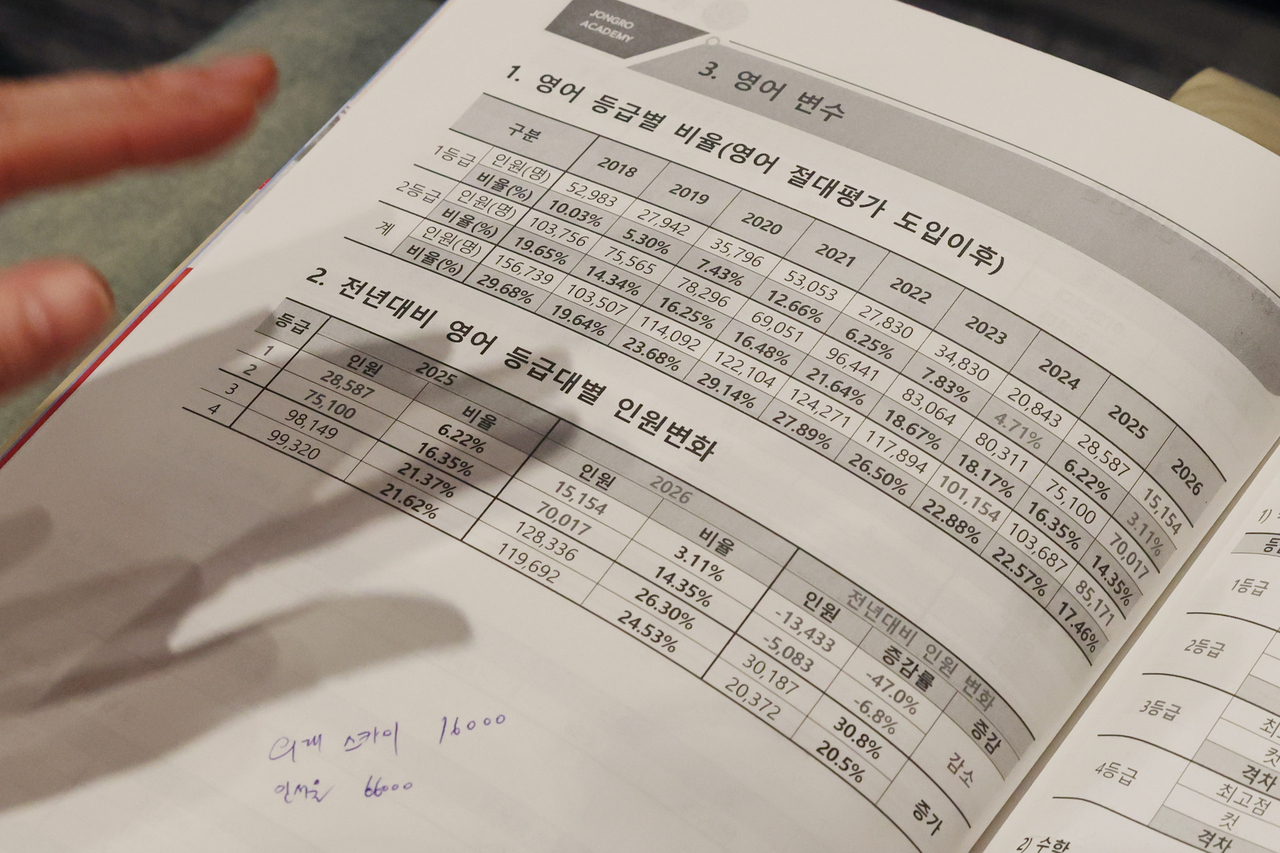 JONGRO
ACADEMY
3. 영어 변수
1. 영어 등급별 비율(영어 절대평가 도입이후)
구분 2018 2019 2020 2021 2022 2023 2024 2025 2026
1등급 인원(명) 52,983 27,942 35,796 53,053 27,830 34,830 20,843 28,587 15,154
비율(%) 10.03% 5.30% 7.43% 12.66% 6.25% 7.83% 4.71% 6.22% 3.11%
2등급 인원(명) 103,756 75,565 78,296 69,051 96,441 83,064 80,311 75,100 70,017
비율(%) 19.65% 14.34% 16.25% 16.48% 21.64% 18.67% 18.17% 16.35% 14.35%
계 인원(명) 156,739 103,507 114,092 122,104 124,271 117,894 101,154 103,687 85,171
비율(%) 29.68% 19.64% 23.68% 29.14% 27.89% 26.50% 22.88% 22.57% 17.46%
2. 전년대비 영어 등급대별 인원변화
등급 2025 2026 전년대비 인원 변화
인원 비율 인원 비율 인원 증감률 증감
1 28,587 6.22% 15,154 3.11% -13,433 -47.0% 감소
2 75,100 16.35% 70,017 14.35% -5,083 -6.8%
3 98,149 21.37% 128,336 26.30% 30,187 30.8% 증가
4 99,320 21.62% 119,692 24.53% 20,372 20.5%
의대 스카이 16000
인서울 66000
1등급
2등급
3등급
4등급
격차
최고점
컷
격차
2) 수학